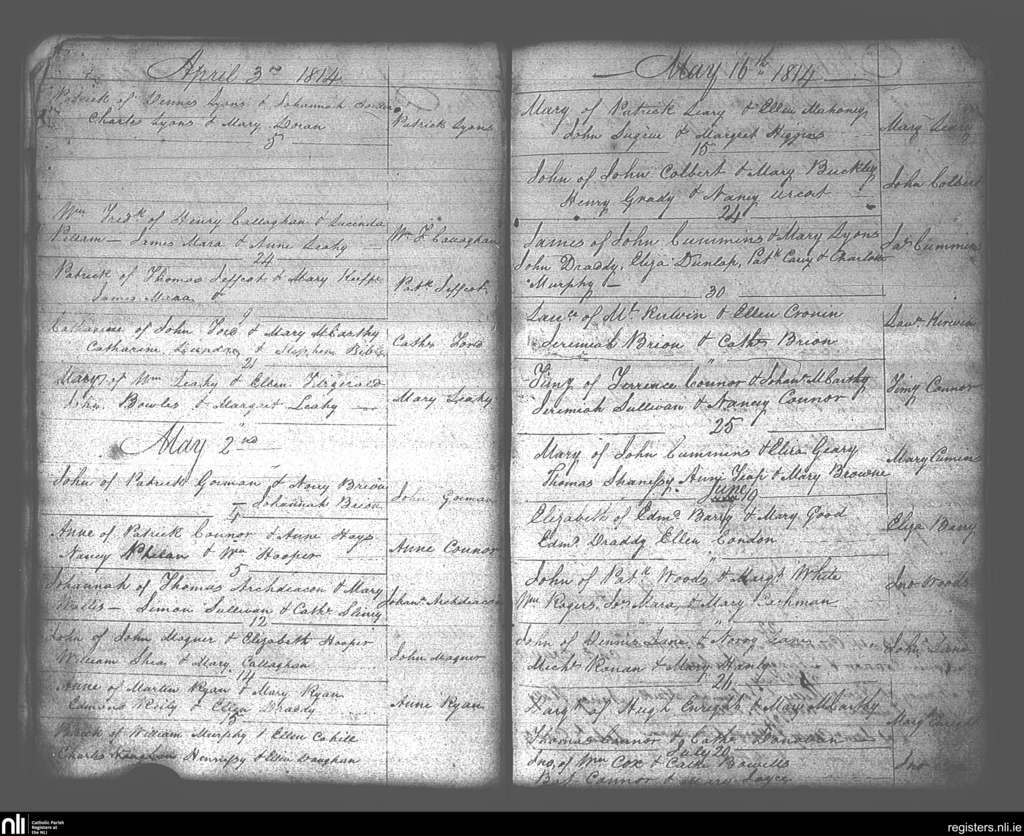 April 3rd 1814
Patrick of Dennis Lyons & Johannah
Charls Lyons & Mary Doran
Patrick Lyons
5
Wm Fredk of Henry Callaghan & Lucinda
Pellam — James Mara & Anne Leahy
Wm F Callaghan
24
Patrick of Thomas Jeffcot & Mary Keeffe
James Mara &
Patk Jeffcot
Catharine of John Ford & Mary McCarthy
Catharine & Stephen
Cathe Ford
21
Mary of Wm Leahy & Ellen Fitzgerald
Bowles & Margret Leahy
Mary Leahy
May 2nd
John of Patrick Gorman & Nory Brion
Johannah Brion
John Gorman
4
Anne of Patrick Connor & Anne Hays
Nancy Phelan & Wm Hooper
Anne Connor
5
Johannah of Thomas Archdeacon & Mary
Walles — Simon Sullivan & Cathe
Johanh Archdeacon
12
John of John Magner & Elizabeth Hooper
William Shea & Mary Callaghan
John Magner
14
Anne of Martin Ryan & Mary Ryan
Edmond Reily & Eliza Draddy
Anne Ryan
15
Patrick of William Murphy & Ellen Cahill
Charles Hennessy & Ellen Vaughan
May 16th 1814
Mary of Patrick Leary & Ellen Mahoney
John Sugrue & Margret Higgins
Mary Leary
15
John of John Colbert & Mary Buckley
Henry Grady & Nancy
John Colbert
24
James of John Cummins & Mary Lyons
John Draddy, Eliza Dunlap, Patk Carey & Charlotte
Murphy
Jas Cummins
30
Lawce of Mt Kirwin & Ellen Cronin
Jeremiah Brion & Cathe Brion
Lawe Kirwin
"
Timy of Terrence Connor & Johanh McCarthy
Jeremiah Sullivan & Nancy Connor
Timy Connor
25
Mary of John Cummins & Eliza Geary
Thomas Shanessy Anne & Mary Browne
Mary Cumins
June 19
Elizabeth of Edmd Barry & Mary Good
Edmd Draddy Ellen Condon
Eliza Barry
"
John of Patk Woods & Margt White
Wm Rogers, Mara, & Mary Cashman
Jno Woods
"
John of Dennis Lane & Norry Lane
Michl Ronan & Mary Hanly
John Lane
24
Margt of Hugh Enright & Mary McCarthy
Thomas Connor & Cathe Donovan
Margt Enright
July 20
Jno of Wm Cox & Cathe
Connor & Mary Joyce
Jno
nli
Catholic Parish
Registers at
the NLI
registers.nli.ie